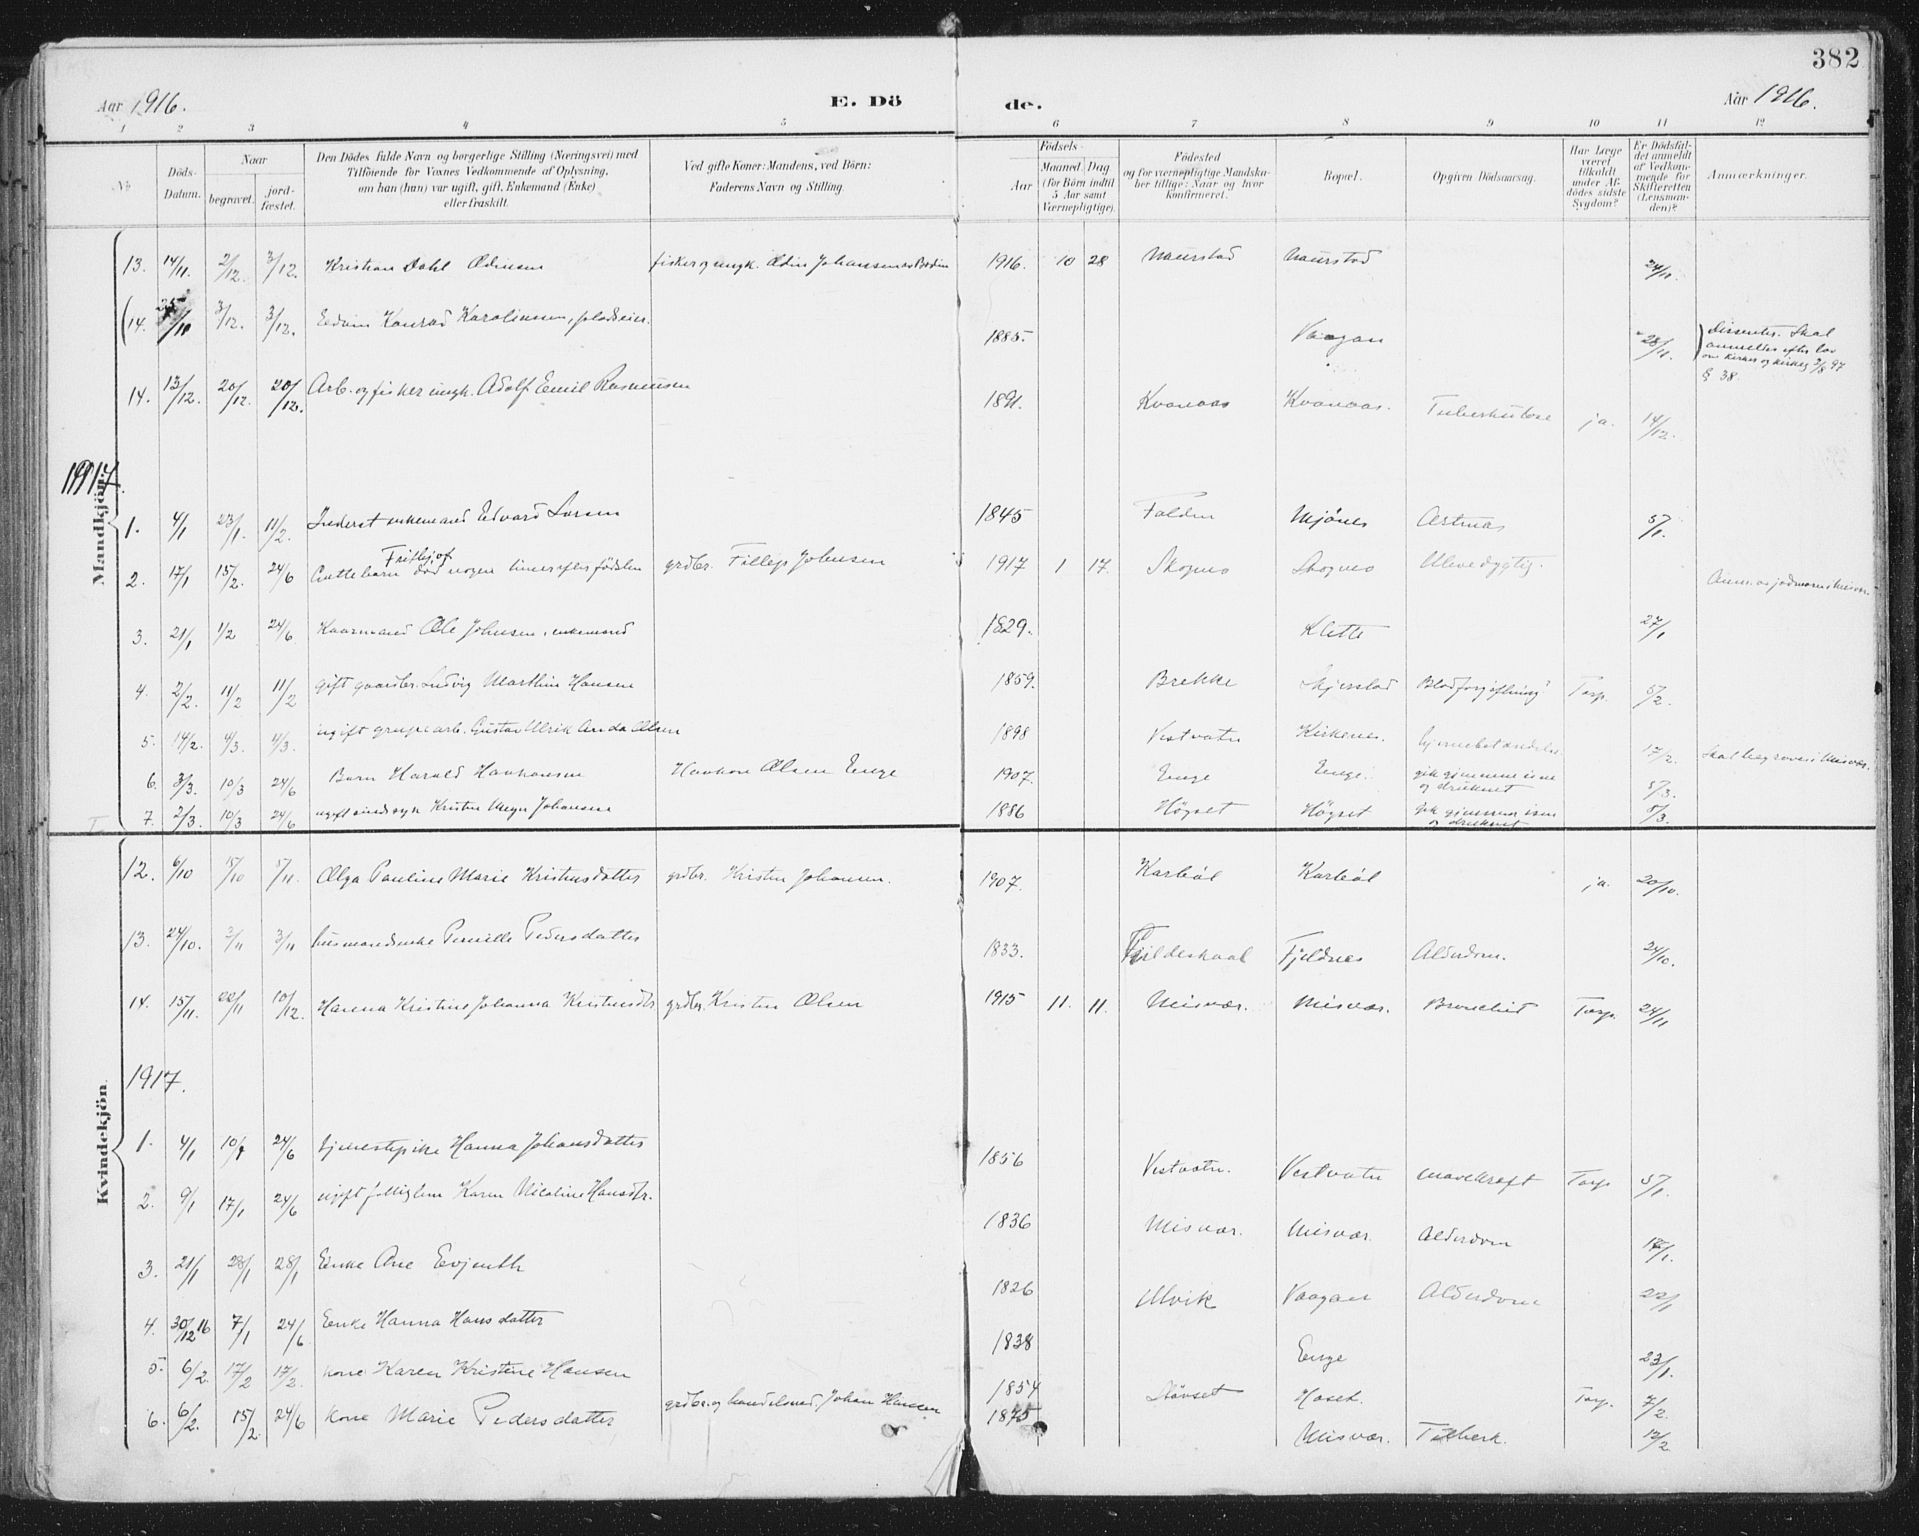 382
Aar 1916. E. Dö de. Aar 1916.
1 2 3 4 5 6 7 8 9 10 11 12
No
Döds-Datum.
Naar
begravet.
jord-fæstet.
Den Dödes fulde Navn og borgerlige Stilling (Næringsvei) med
Tilföiende for Voxnes Vedkommende af Oplysning,
om han (hun) var ugift, gift, Enkemand (Enke)
eller fraskilt.
Ved gifte Koner: Mandens, ved Börn:
Faderens Navn og Stilling.
Födsels-
Aar
Maaned. Dag
(for Börn indtil
5 Aar samt
Værnepligtige).
Födested
og for værnepligtige Mandska-
ber tillige: Naar og hvor
konfirmeret.
Bopæl.
Opgiven Dödsaarsag.
Har Læge
været
tilkaldt
under Af-
dödes sidste
Sygdom?
Er Dödsfal-
det anmeldt
af Vedkom-
mende for
Skifteretten
(Lensman-
den)?
Anmærkninger.
Mandkjön.
13. 14/11. 2/12. 3/12. Kristian Dahl Odinsen fisker og ungk. Odin Johansen 1916. 10 28 Maurstad Maurstad 24/11.
(14. 25/11 3/12. 3/12. Edvin Konrad Karolinsen, pladseier. 1885. Vaagan 28/11. Dissenter. Skal
anmeldes efter lov
om kirker og kirkeg 3/8 97
§ 38.
14. 13/12. 20/12. 20/12. Arb. og fisker ungk. Adolf Emil Rasmussen 1891. Kvanaas Kvanaas. Tuberkulose ja. 14/12.
1917.
1. 4/1 23/1. 11/2. Inderst enkemand Edvard Larsen 1845 Folden Mjönes Astma 5/1.
2. 17/1 15/2. 24/6 Fritjof
Guttebarn död nogen timer efter födslen grdbr. Fillip Johnsen 1917 1 17. Skognes Skognes Ulevedygtig.
3. 21/1 1/2 24/6 Kaarmand Ole Johnsen, enkemand 1829. Klette 27/1
4. 2/2. 11/2 11/2 gift gaardbr. Ludvig Marthin Hansen 1859. Brekke Skjerstad Blodforgiftning Torp. 5/2
5. 14/2. 4/3. 4/3. ugift grubearb. Gustav Ulrik Anda Olsen 1898 Vestvatn Kirkenes. 17/2. Skal begraves i Misvær.
6. 3/3. 10/3 24/6 Barn Harald Haakonsen Haakon Olsen Enge 1907. Enge Enge. gik gjennem isen
og druknet 5/3.
7. 2/3. 10/3 24/6 ugift Kristen Meyer Johansen 1886 Högset Högset gik gjennem isen
og druknet 5/3.
Kvindekjön.
12. 6/10 15/10 5/11. Olga Pauline Marie Kristensdatter grdbr. Kristen Johansen. 1907. Karböl Karböl ja. 20/10.
13. 24/10. 3/11 3/11 husmandsenke Pernille Pedersdatter 1833. Gildeskaal Fjeldnes Alderdom. 24/10.
14. 15/11. 22/11 10/12. Hanna Kristine Johanna Kristensdtr. grdbr. Kristen Olsen 1915 11. 11. Misvær. Misvær. Bronchit Torp. 24/11
1917.
1. 4/1 10/1 24/6 tjenestepike Hanna Johansdatter 1856 Vestvatn. Vestvatn mavekræft Torp 5/1.
2. 9/1 17/1 24/6 ugift fattiglem Karen Nicoline Hansdtr. 1836 Misvær. Misvær. Alderdom 17/1.
3. 21/1 28/1 28/1 Enke Ane Evjenth 1826 Ulvik Vaagan Alderdom 22/1
4. 30/12 16 7/1 24/6 Enke Hanna Hansdatter 1838 Enge 23/1.
5. 6/2. 17/2 17/2. kone Karen Kristine Hansen 1854 Støvset Hoset. Torp. 7/2.
6. 6/2. 15/2. 24/6 kone Marie Pedersdatter grdbr. og handelsmd. Johan Hansen 1875 Misvær. Tuberk. 12/2